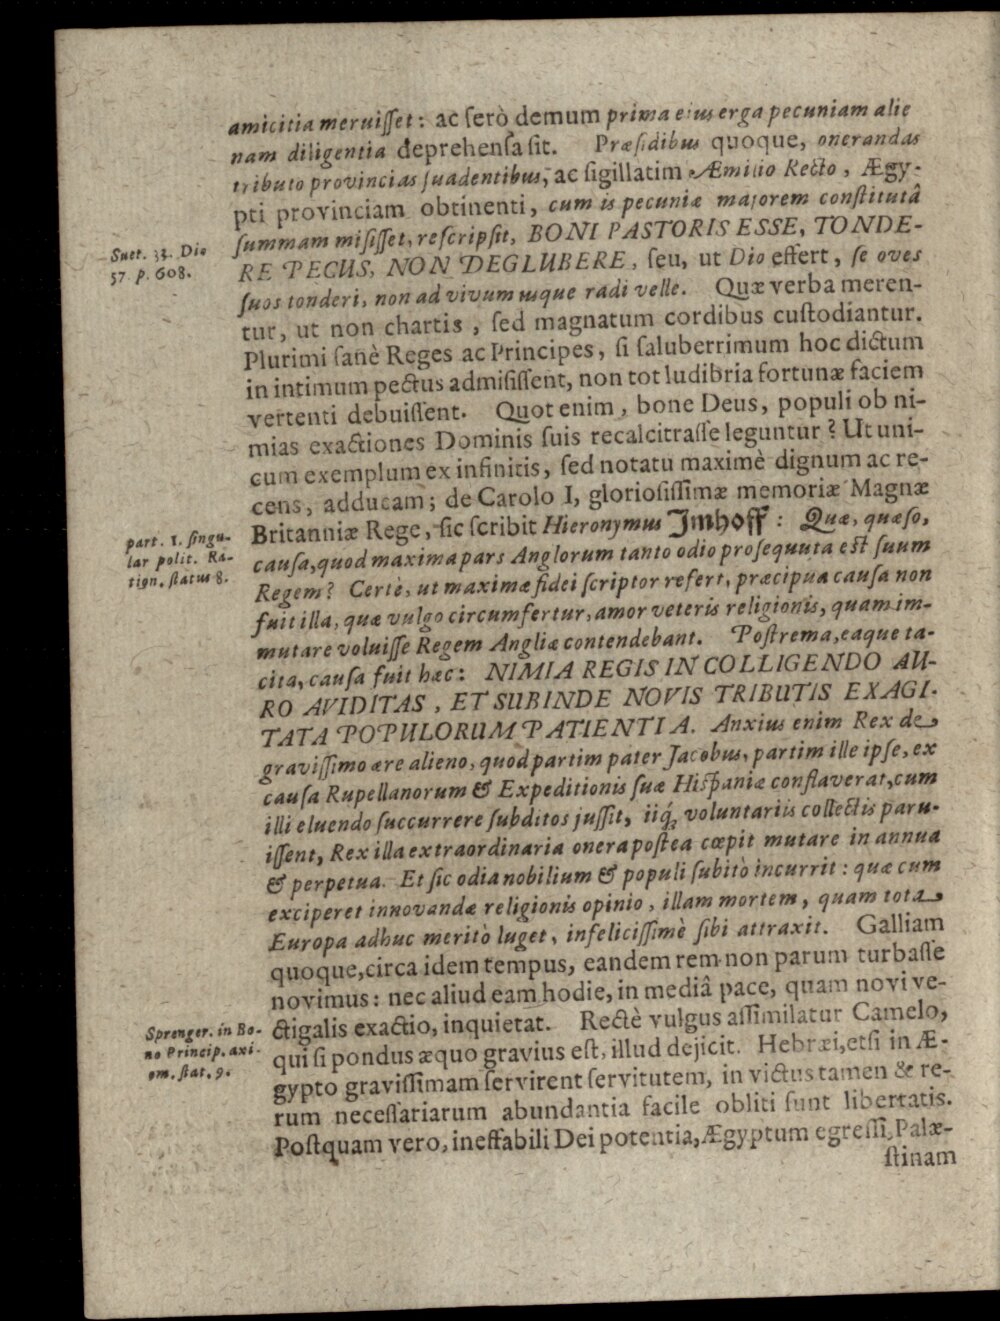 amicitia meruiſſet: ac ſerò demum prima ejus erga pecuniam alie
nam diligentia deprehenſa ſit. Præſidibus quoque, onerandas
tributo provincias ſuadentibus, ac ſigillatim Æmilio Recto, Ægy-
pti provinciam obtinenti, cum is pecuniæ majorem conſtitutâ
ſummam miſiſſet, reſcripſit, BONI PASTORIS ESSE, TONDE-
Suet. 33. Dio
57. p. 608.
RE PECUS, NON DEGLUBERE, ſeu, ut Dio effert, ſe oves
ſuos tonderi, non ad vivum usque radi velle. Quæ verba meren-
tur, ut non chartis, ſed magnatum cordibus cuſtodiantur.
Plurimi ſanè Reges ac Principes, ſi ſaluberrimum hoc dictum
in intimum pectus admiſiſſent, non tot ludibria fortunæ faciem
vertenti debuiſſent. Quot enim, bone Deus, populi ob ni-
mias exactiones Dominis ſuis recalcitraſſe leguntur? Ut uni-
cum exemplum ex infinitis, ſed notatu maximè dignum ac re-
cens, adducam; de Carolo I, glorioſiſſimæ memoriæ Magnæ
Britanniæ Rege, ſic ſcribit Hieronymus Imhoff: Quæ, quæſo,
part. 1. ſingu-
lar polit. Ra-
tign. ſtatus 8.
cauſa, quod maxima pars Anglorum tanto odio proſequuta eſt ſuum
Regem? Certè, ut maximæ fidei ſcriptor refert, præcipua cauſa non
fuit illa, quæ vulgo circumfertur, amor veteris religionis, quam im-
mutare voluiſſe Regem Angliæ contendebant. Poſtrema, eaque ta-
cita, cauſa fuit hæc: NIMIA REGIS IN COLLIGENDO AU-
RO AVIDITAS, ET SUBINDE NOVIS TRIBUTIS EXAGI-
TATA POPULORUM PATIENTIA. Anxius enim Rex de
graviſſimo ære alieno, quod partim pater Jacobus, partim ille ipſe, ex
cauſa Rupellanorum & Expeditionis ſuæ Hiſpaniæ conflaverat, cum
illi eluendo ſuccurrere ſubditos juſſit, iiq́; voluntariis collectis paru-
iſſent, Rex illa extraordinaria onera poſtea cœpit mutare in annua
& perpetua. Et ſic odia nobilium & populi ſubitò incurrit: quæ cum
exciperet innovandæ religionis opinio, illam mortem, quam tota
Europa adhuc meritò luget, infeliciſſimè ſibi attraxit. Galliam
quoque, circa idem tempus, eandem rem non parum turbaſſe
novimus: nec aliud eam hodie, in mediâ pace, quam novi ve-
ctigalis exactio, inquietat. Rectè vulgus aſſimilatur Camelo,
Sprenger. in Bo-
no Princip. axi-
om. ſtat. 9.
qui ſi pondus æquo gravius eſt, illud dejicit. Hebræi, etſi in Æ-
gypto graviſſimam ſervirent ſervitutem, in victus tamen & re-
rum neceſſariarum abundantia facile obliti ſunt libertatis.
Poſtquam vero, ineffabili Dei potentia, Ægyptum egreſſi, Palæ-
ſtinam